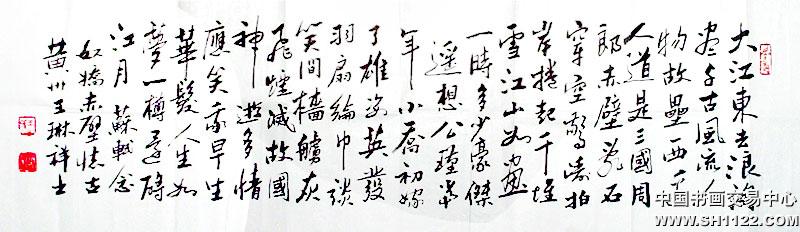 大江東去浪淘
盡千古風流人
物故壘西邊
人道是三國周
郎赤壁亂石
穿空驚濤拍
岸捲起千堆
雪江山如畫
一時多少豪傑
遙想公瑾當
年小喬初嫁
了雄姿英發
羽扇綸巾談
笑間檣艣灰
飛煙滅故國
神遊多情
應笑我早生
華髮人生如
夢一樽還酹
江月 蘇軾念
奴嬌赤壁懷古
黃州王琳祥
中国书画交易中心
WWW.SH1122.COM